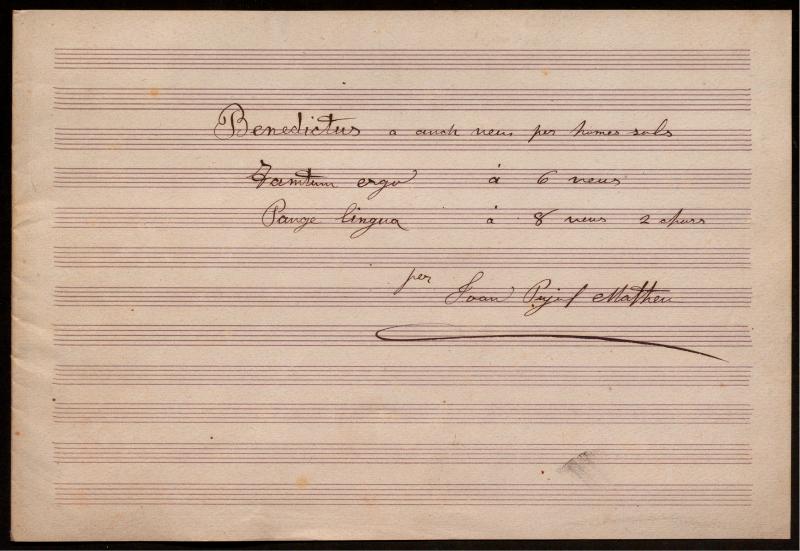 Benedictus a auch veus per homes sols
Tamtum ergo à 6 veus
Pange lingua à 8 veus 2 chors
per Joan Pujol Matheu